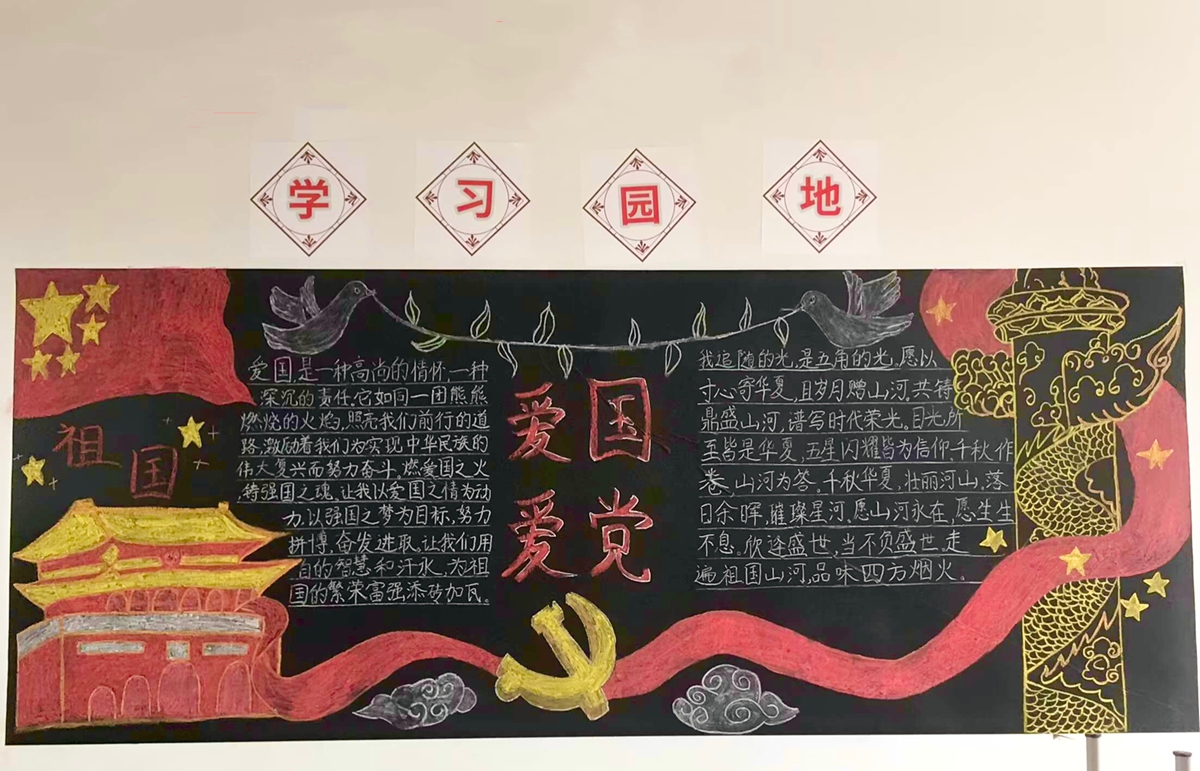 学习园地
祖国
爱国是一种高尚的情怀,一种
深沉的责任,它如同一团熊熊
燃烧的火焰,照亮我们前行的道
路,激励着我们为实现中华民族的
伟大复兴而努力奋斗.燃爱国之火
铸强国之魂,让我以爱国之情为动
力,以强国之梦为目标,努力
拼博,奋发进取。让我们用
自的智慧和汗水,为祖
国的繁荣富强添砖加瓦。
爱国
爱党
我追随的光,是五角的光,愿以
寸心寄华夏,且岁月赠山河,共铸
鼎盛山河,谱写时代荣光。目光所
至皆是华夏,五星闪耀皆为信仰.千秋作
卷,山河为答,千秋华夏,壮丽河山,落
日余晖,璀璨星河,愿山河永在,愿生生
不息。欣逢盛世,当不负盛世,走
遍祖国山河,品味四方烟火。